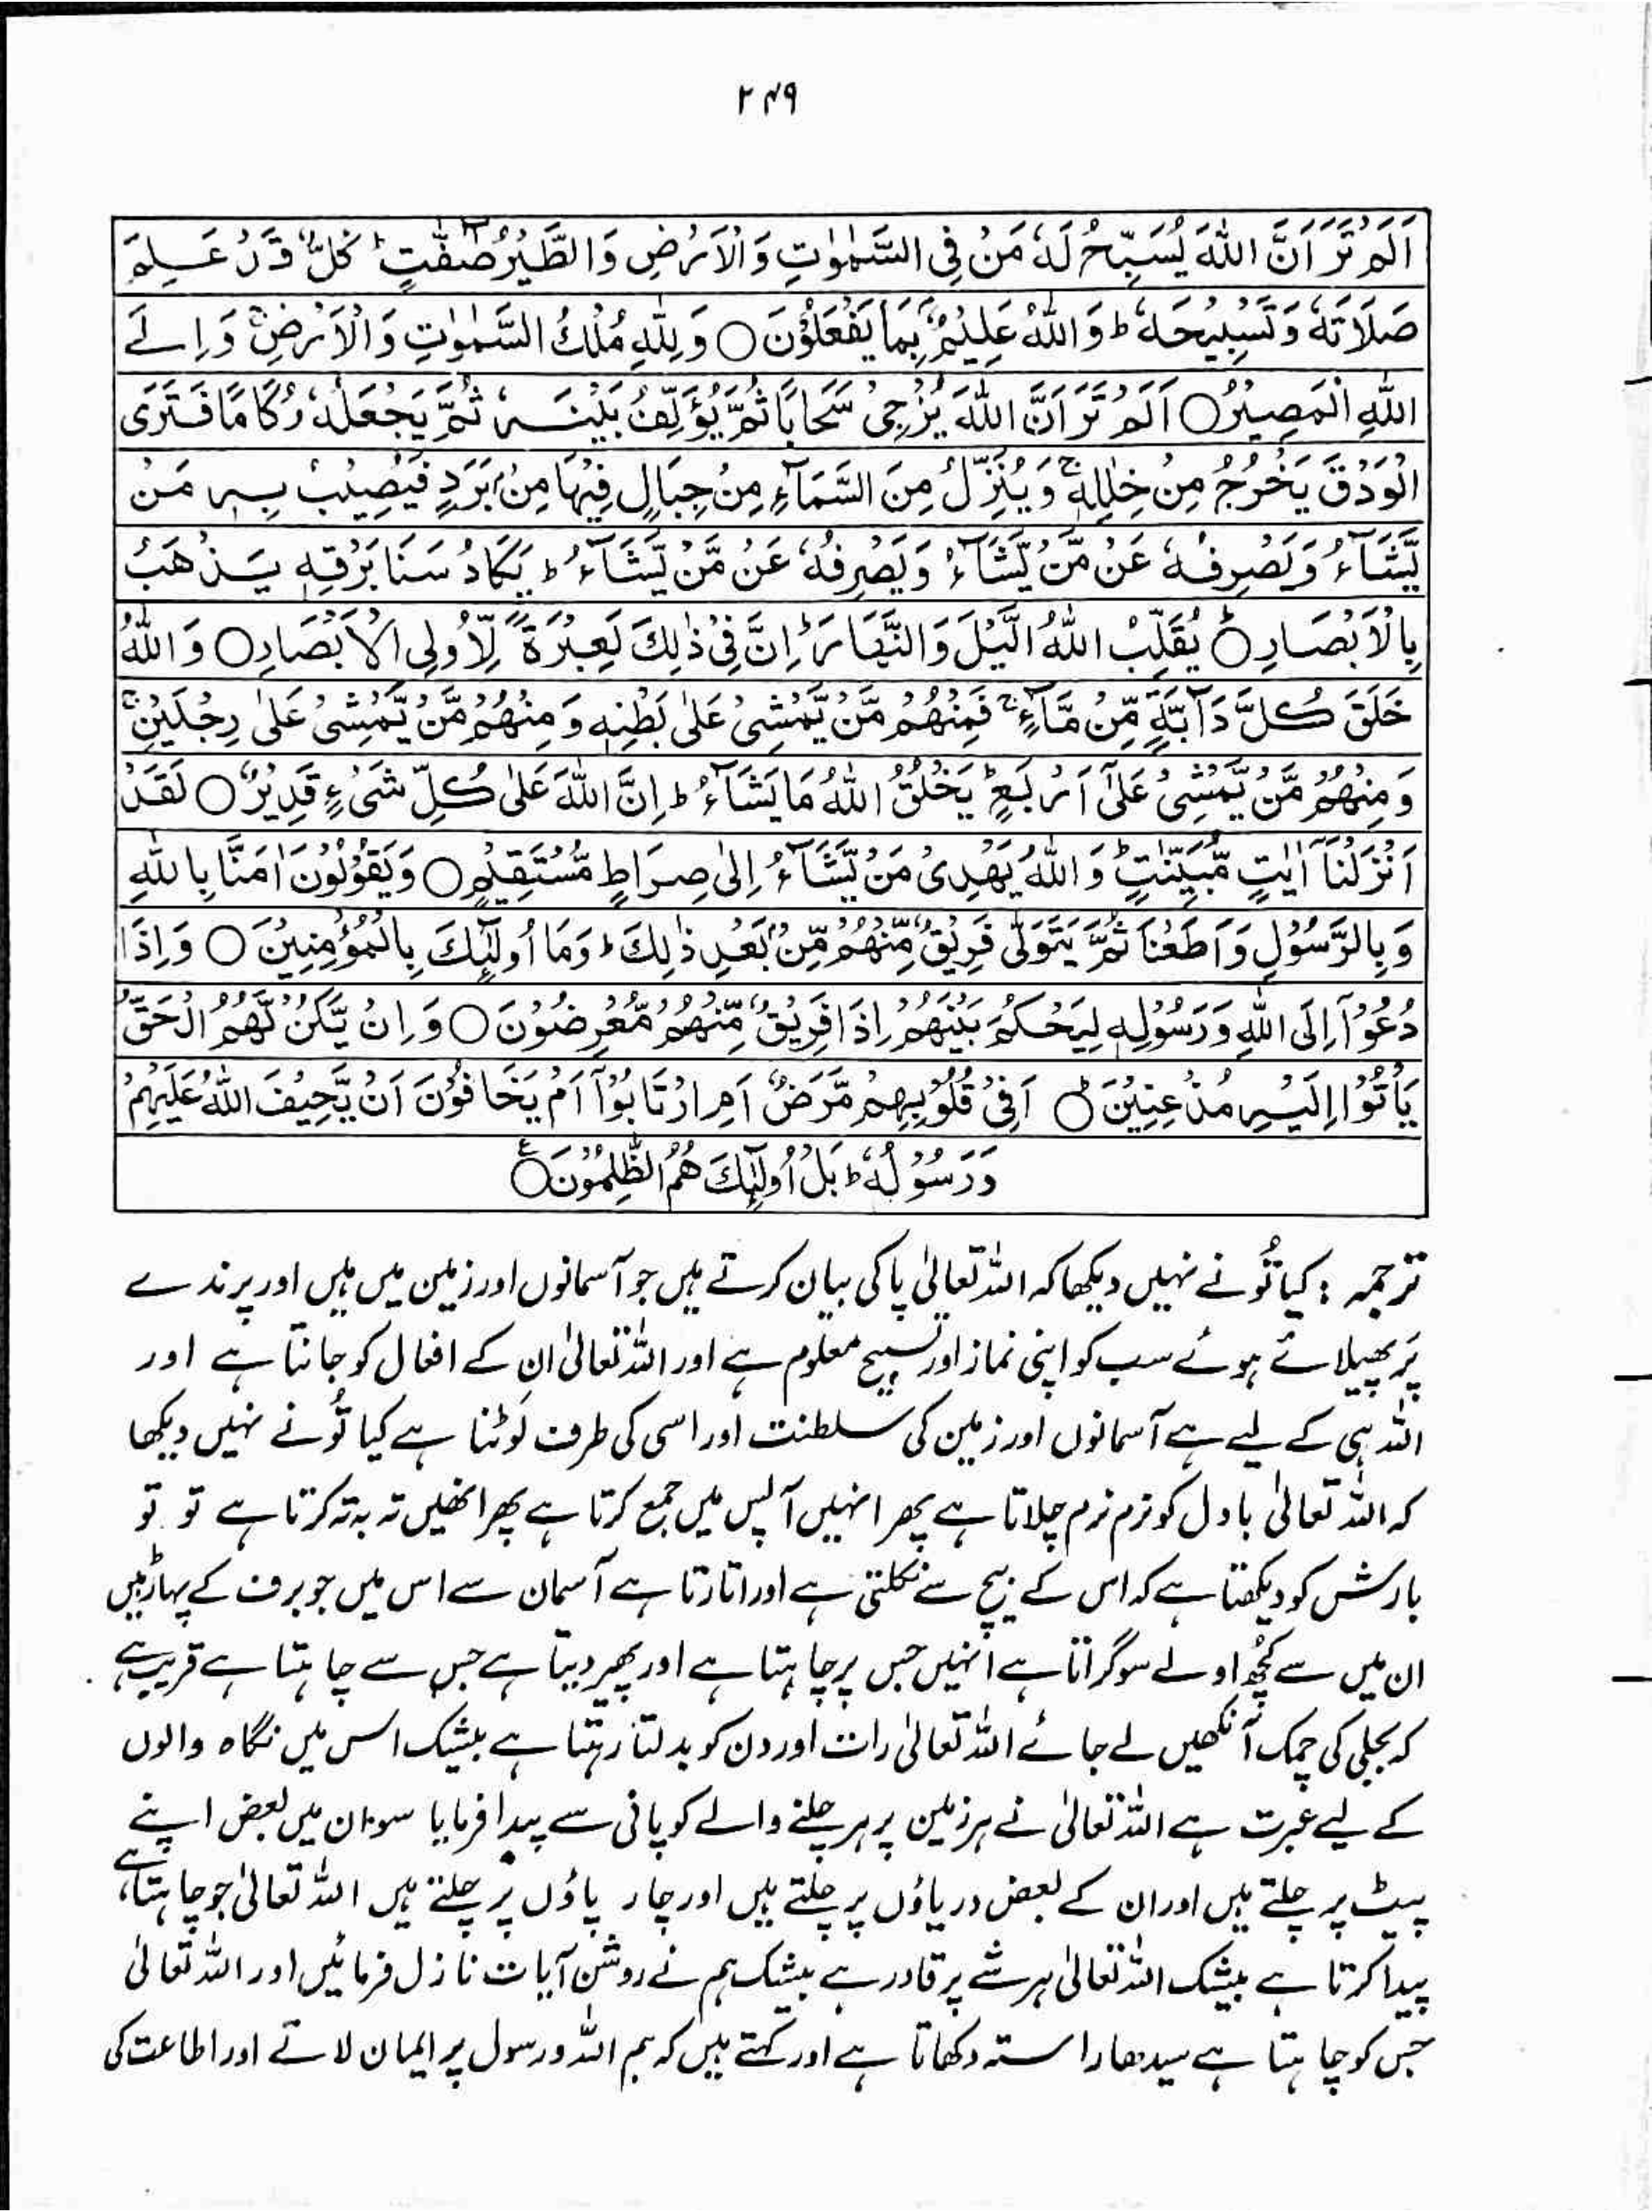 ۲۴۹
اَلَمْ تَرَ اَنَّ اللّٰهَ يُسَبِّحُ لَهٗ مَنْ فِى السَّمٰوٰتِ وَالْاَرْضِ وَالطَّيْرُ صٰٓفّٰتٍ ؕ كُلٌّ قَدْ عَلِمَ
صَلَاتَهٗ وَتَسْبِيْحَهٗ ؕ وَاللّٰهُ عَلِيْمٌۢ بِمَا يَفْعَلُوْنَ ○ وَلِلّٰهِ مُلْكُ السَّمٰوٰتِ وَالْاَرْضِ ۚ وَاِلَى
اللّٰهِ الْمَصِيْرُ ○ اَلَمْ تَرَ اَنَّ اللّٰهَ يُزْجِىْ سَحَابًا ثُمَّ يُؤَلِّفُ بَيْنَهٗ ثُمَّ يَجْعَلُهٗ رُكَامًا فَتَرَى
الْوَدْقَ يَخْرُجُ مِنْ خِلٰلِهٖ ۚ وَيُنَزِّلُ مِنَ السَّمَآءِ مِنْ جِبَالٍ فِيْهَا مِنْۢ بَرَدٍ فَيُصِيْبُ بِهٖ مَنْ
يَّشَآءُ وَيَصْرِفُهٗ عَنْ مَّنْ يَّشَآءُ وَيَصْرِفُهٗ عَنْ مَّنْ يَّشَآءُ ؕ يَكَادُ سَنَا بَرْقِهٖ يَذْهَبُ
بِالْاَبْصَارِ ○ؕ يُقَلِّبُ اللّٰهُ الَّيْلَ وَالنَّهَارَ ؕ اِنَّ فِىْ ذٰلِكَ لَعِبْرَةً لِّاُولِى الْاَبْصَارِ ○ وَاللّٰهُ
خَلَقَ كُلَّ دَآبَّةٍ مِّنْ مَّآءٍ ۚ فَمِنْهُمْ مَّنْ يَّمْشِىْ عَلٰى بَطْنِهٖ وَمِنْهُمْ مَّنْ يَّمْشِىْ عَلٰى رِجْلَيْنِ ۚ
وَمِنْهُمْ مَّنْ يَّمْشِىْ عَلٰٓى اَرْبَعٍ ؕ يَخْلُقُ اللّٰهُ مَا يَشَآءُ ؕ اِنَّ اللّٰهَ عَلٰى كُلِّ شَىْءٍ قَدِيْرٌ ○ لَقَدْ
اَنْزَلْنَآ اٰيٰتٍ مُّبَيِّنٰتٍ ؕ وَاللّٰهُ يَهْدِىْ مَنْ يَّشَآءُ اِلٰى صِرَاطٍ مُّسْتَقِيْمٍ ○ وَيَقُوْلُوْنَ اٰمَنَّا بِاللّٰهِ
وَبِالرَّسُوْلِ وَاَطَعْنَا ثُمَّ يَتَوَلّٰى فَرِيْقٌ مِّنْهُمْ مِّنْۢ بَعْدِ ذٰلِكَ ؕ وَمَا اُولٰٓئِكَ بِالْمُؤْمِنِيْنَ ○ وَاِذَا
دُعُوْٓا اِلَى اللّٰهِ وَرَسُوْلِهٖ لِيَحْكُمَ بَيْنَهُمْ اِذَا فَرِيْقٌ مِّنْهُمْ مُّعْرِضُوْنَ ○ وَاِنْ يَّكُنْ لَّهُمُ الْحَقُّ
يَاْتُوْٓا اِلَيْهِ مُذْعِنِيْنَ ○ؕ اَفِىْ قُلُوْبِهِمْ مَّرَضٌ اَمِ ارْتَابُوْٓا اَمْ يَخَافُوْنَ اَنْ يَّحِيْفَ اللّٰهُ عَلَيْهِمْ
وَرَسُوْلُهٗ ؕ بَلْ اُولٰٓئِكَ هُمُ الظّٰلِمُوْنَ ○ ع
ترجمہ : کیا تُو نے نہیں دیکھا کہ اللہ تعالیٰ پاکی بیان کرتے ہیں جو آسمانوں اور زمین میں ہیں اور پرندے
پَر پھیلائے ہوئے سب کو اپنی نماز اور تسبیح معلوم ہے اور اللہ تعالیٰ ان کے افعال کو جانتا ہے اور
اللہ ہی کے لیے ہے آسمانوں اور زمین کی سلطنت اور اسی کی طرف لَوٹنا ہے کیا تُو نے نہیں دیکھا
کہ اللہ تعالیٰ بادل کو نرم نرم چلاتا ہے پھر انہیں آپس میں جمع کرتا ہے پھر انھیں تہ بہ تہ کرتا ہے تو تو
بارش کو دیکھتا ہے کہ اس کے بیچ سے نکلتی ہے اور اتارتا ہے آسمان سے اس میں جو برف کے پہاڑ ہیں
ان میں سے کُچھ اولے سو گراتا ہے انہیں جس پر چاہتا ہے اور پھیر دیتا ہے جس سے چاہتا ہے قریب ہے
کہ بجلی کی چمک آنکھیں لے جائے اللہ تعالیٰ رات اور دن کو بدلتا رہتا ہے بیشک اس میں نگاہ والوں
کے لیے عبرت ہے اللہ تعالیٰ نے ہر زمین پر ہر چلنے والے کو پانی سے پیدا فرمایا سو ان میں بعض اپنے
پیٹ پر چلتے ہیں اور ان کے بعض دریاؤں پر چلتے ہیں اور چار پاؤں پر چلتے ہیں اللہ تعالیٰ جو چاہتا ہے
پیدا کرتا ہے بیشک اللہ تعالیٰ ہر شے پر قادر ہے بیشک ہم نے روشن آیات نازل فرمائیں اور اللہ تعالیٰ
جس کو چاہتا ہے سیدھا راستہ دکھاتا ہے اور کہتے ہیں کہ ہم اللہ و رسول پر ایمان لائے اور اطاعت کی